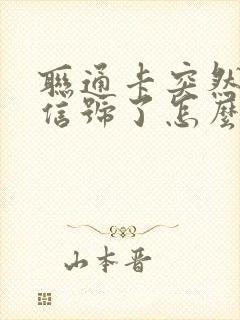 聯通卡突然
信號了怎麼
山本晋